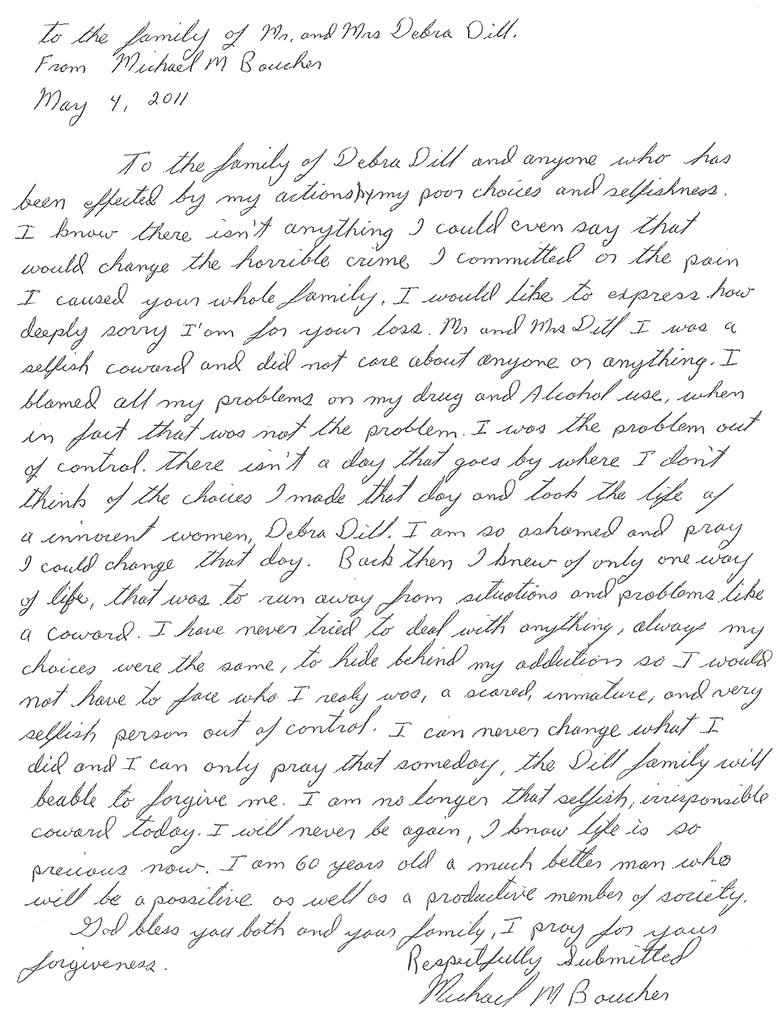 to the family of Mr. and Mrs Debra Dill.
From Michael M Boucher
May 4, 2011
To the family of Debra Dill and anyone who has
been effected by my actions by my poor choices and selfishness.
I know there isn't anything I could even say that
would change the horrible crime I committed or the pain
I caused your whole family. I would like to express how
deeply sorry I'am for your loss. Mr and Mrs Dill I was a
selfish coward and did not care about anyone or anything. I
blamed all my problems on my drug and Alcohol use, when
in fact that was not the problem. I was the problem out
of control. There isn't a day that goes by where I don't
think of the choices I made that day and took the life of
a innocent women, Debra Dill. I am so ashamed and pray
I could change that day. Back then I knew of only one way
of life, that was to run away from situations and problems like
a coward. I have never tried to deal with anything, always my
choices were the same, to hide behind my addiction so I would
not have to face who I realy was, a scared, inmature, and very
selfish person out of control. I can never change what I
did and I can only pray that someday, the Dill family will
beable to forgive me. I am no longer that selfish, irrisponsible
coward today. I will never be again, I know life is so
precious now. I am 60 years old a much better man who
will be a possitive as well as a productive member of society.
God bless you both and your family, I pray for your
forgiveness. Respectfully Submitted
Michael M Boucher